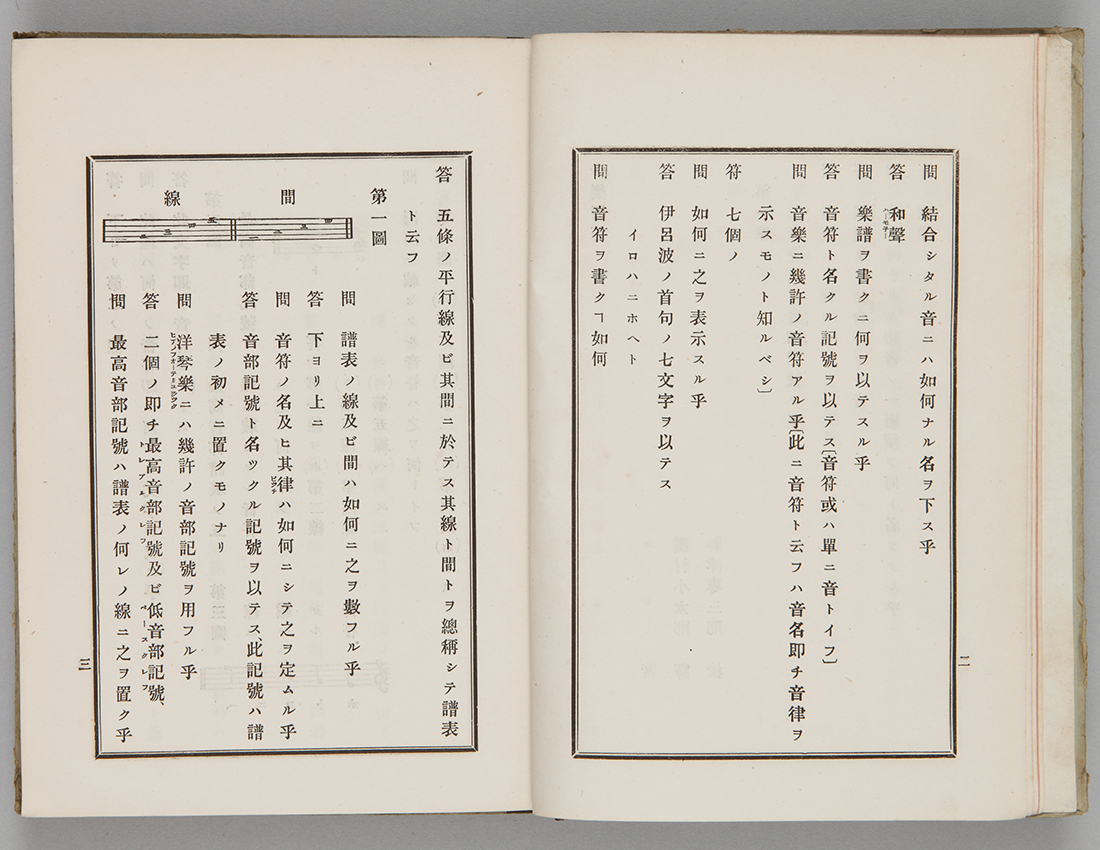 問　結合シタル音ニハ如何ナル名ヲ下ス乎
答　和聲
ハーモニー
問　樂譜ヲ書クニ何ヲ以テスル乎
答　音符ト名クル記號ヲ以テス〔音符或ハ單ニ音トイフ〕
問　音樂ニ幾許ノ音符アル乎〔此ニ音符ト云フハ音名即チ音律ヲ
示スモノト知ルベシ〕
符　七個ノ
問　如何ニ之ヲ表示スル乎
答　伊呂波ノ首句ノ七文字ヲ以テス
イロハニホヘト
問　音符ヲ書クヿ如何
二
答　五條ノ平行線及ビ其間ニ於テス其線ト間トヲ總稱シテ譜表
ト云フ
第一圖
間
一
二
三
四
線
一
二
三
四
五
問　譜表ノ線及ビ間ハ如何ニ之ヲ數フル乎
答　下ヨリ上ニ
問　音符ノ名及ヒ其律ハ如何ニシテ之ヲ定ムル乎
ピツチ
答　音部記號ト名ツクル記號ヲ以テス、此記號ハ譜
表ノ初メニ置クモノナリ
問　洋琴樂ニハ幾許ノ音部記號ヲ用フル乎
答　二個ノ即チ最高音部記號及ビ低音部記號、
トレブルクレフ
ベースクレフ
問　最高音部記號ハ譜表ノ何レノ線ニ之ヲ置ク乎
三